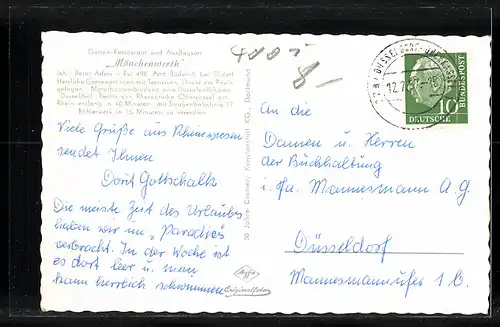 Garten-Restaurant und Ausflugsort
"Mönchenwerth"
Inh. Peter Adria - Ruf 498 Amt Büderich bei
Herrliche Gartenanlagen mit Terrassen. Direkt am Rhein
gelegen. Motorbootverbindung
Düsseldorf. Per
Rhein entlang in 40 Minuten, mit Straßenbahnlinie
in 15 Minuten zu erreichen
Viele Grüße aus Rheinwiesen
sendet Ihnen
Dorit Gottschalk
Die meiste Zeit des Urlaubs
haben wir im "Paradies"
verbracht. In der Woche ist
es dort leer u. man
kann herrlich schwimmen
50 Jahre Cramers Kunstanstalt KG., Dortmund
Agfa
Originalfoto
8-
DÜSSELDORF
12.7.
DEUTSCHE
BUNDESPOST
10
An die
Damen u. Herren
der Buchhaltung
i. Fa. Mannesmann A.G.
Düsseldorf
Mannesmannufer 1 B.